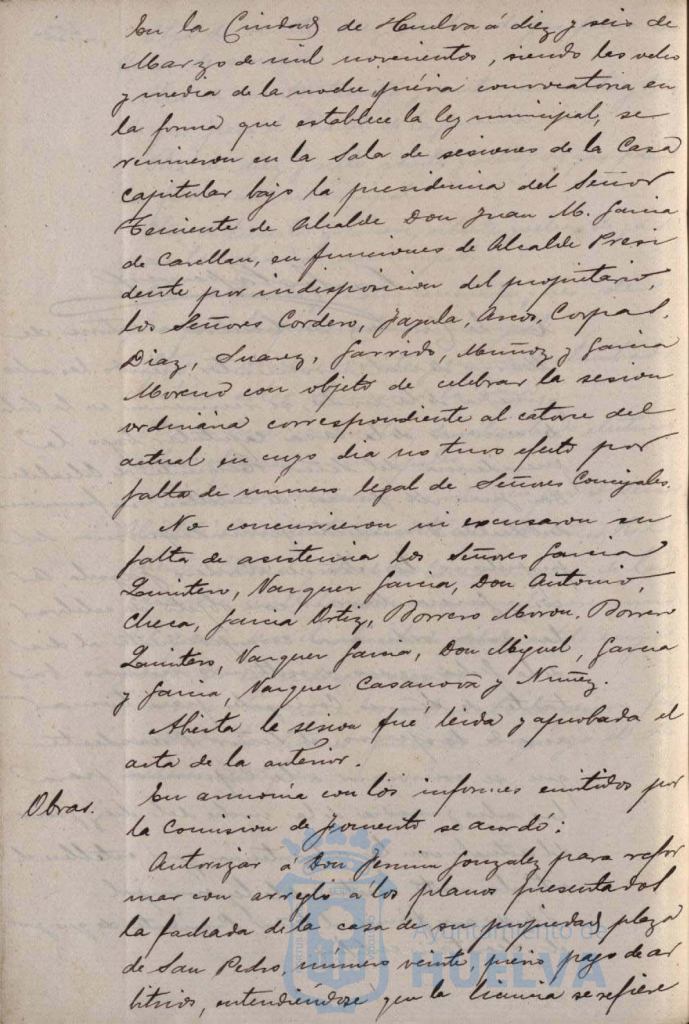 En la Ciudad de Huelva á diez y seis de
Marzo de mil novecientos, siendo las ocho
y media de la noche, prévia convocatoria en
la forma que establece la ley municipal, se
reunieron en la Sala de sesiones de la Casa
capitular bajo la presidencia del Señor
Teniente de Alcalde Don Juan M. Garcia
de Casellan, en funciones de Alcalde Presi
dente por indisposicion del propietario,
los Señores Cordero, Arcos,
Diaz, Suarez, Garrido, Muñoz y Garcia
Moreno con objeto de celebrar la sesion
ordinaria correspondiente al catorce del
actual en cuyo dia no tuvo efecto por
falta de número legal de Señores Concejales.
No concurrieron ni excusaron su
falta de asistencia los Señores Garcia
Quintero, Vazquez Garcia, Don Antonio,
Checa, Garcia Ortiz, Borrero Moron, Borrero
Quintero, Vazquez Garcia, Don Miguel, Garcia
y Garcia, Vazquez Casanova y Nuñez.
Abierta la sesion fué leida y aprobada el
acta de la anterior.
Obras.
En armonia con los informes emitidos por
la Comision de Fomento se acordó:
Autorizar á Don Gonzalez para refor
mar con arreglo á los planos presentados
la fachada de la casa de su propiedad plaza
de San Pedro, número veinte, prévio pago de ar
bitrios, entendiéndose que la licencia se refiere
Ayuntamiento de
HUELVA